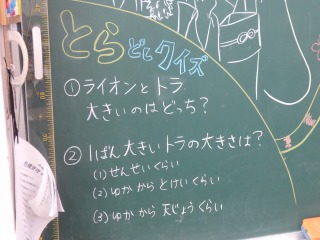 とらどしクイズ
①ライオンとトラ
大きいのはどっち?
②1ばん大きいトラの大きさは?
(1)せんせいくらい
(2)ゆかからとけいくらい
(3)ゆかから天じょうくらい